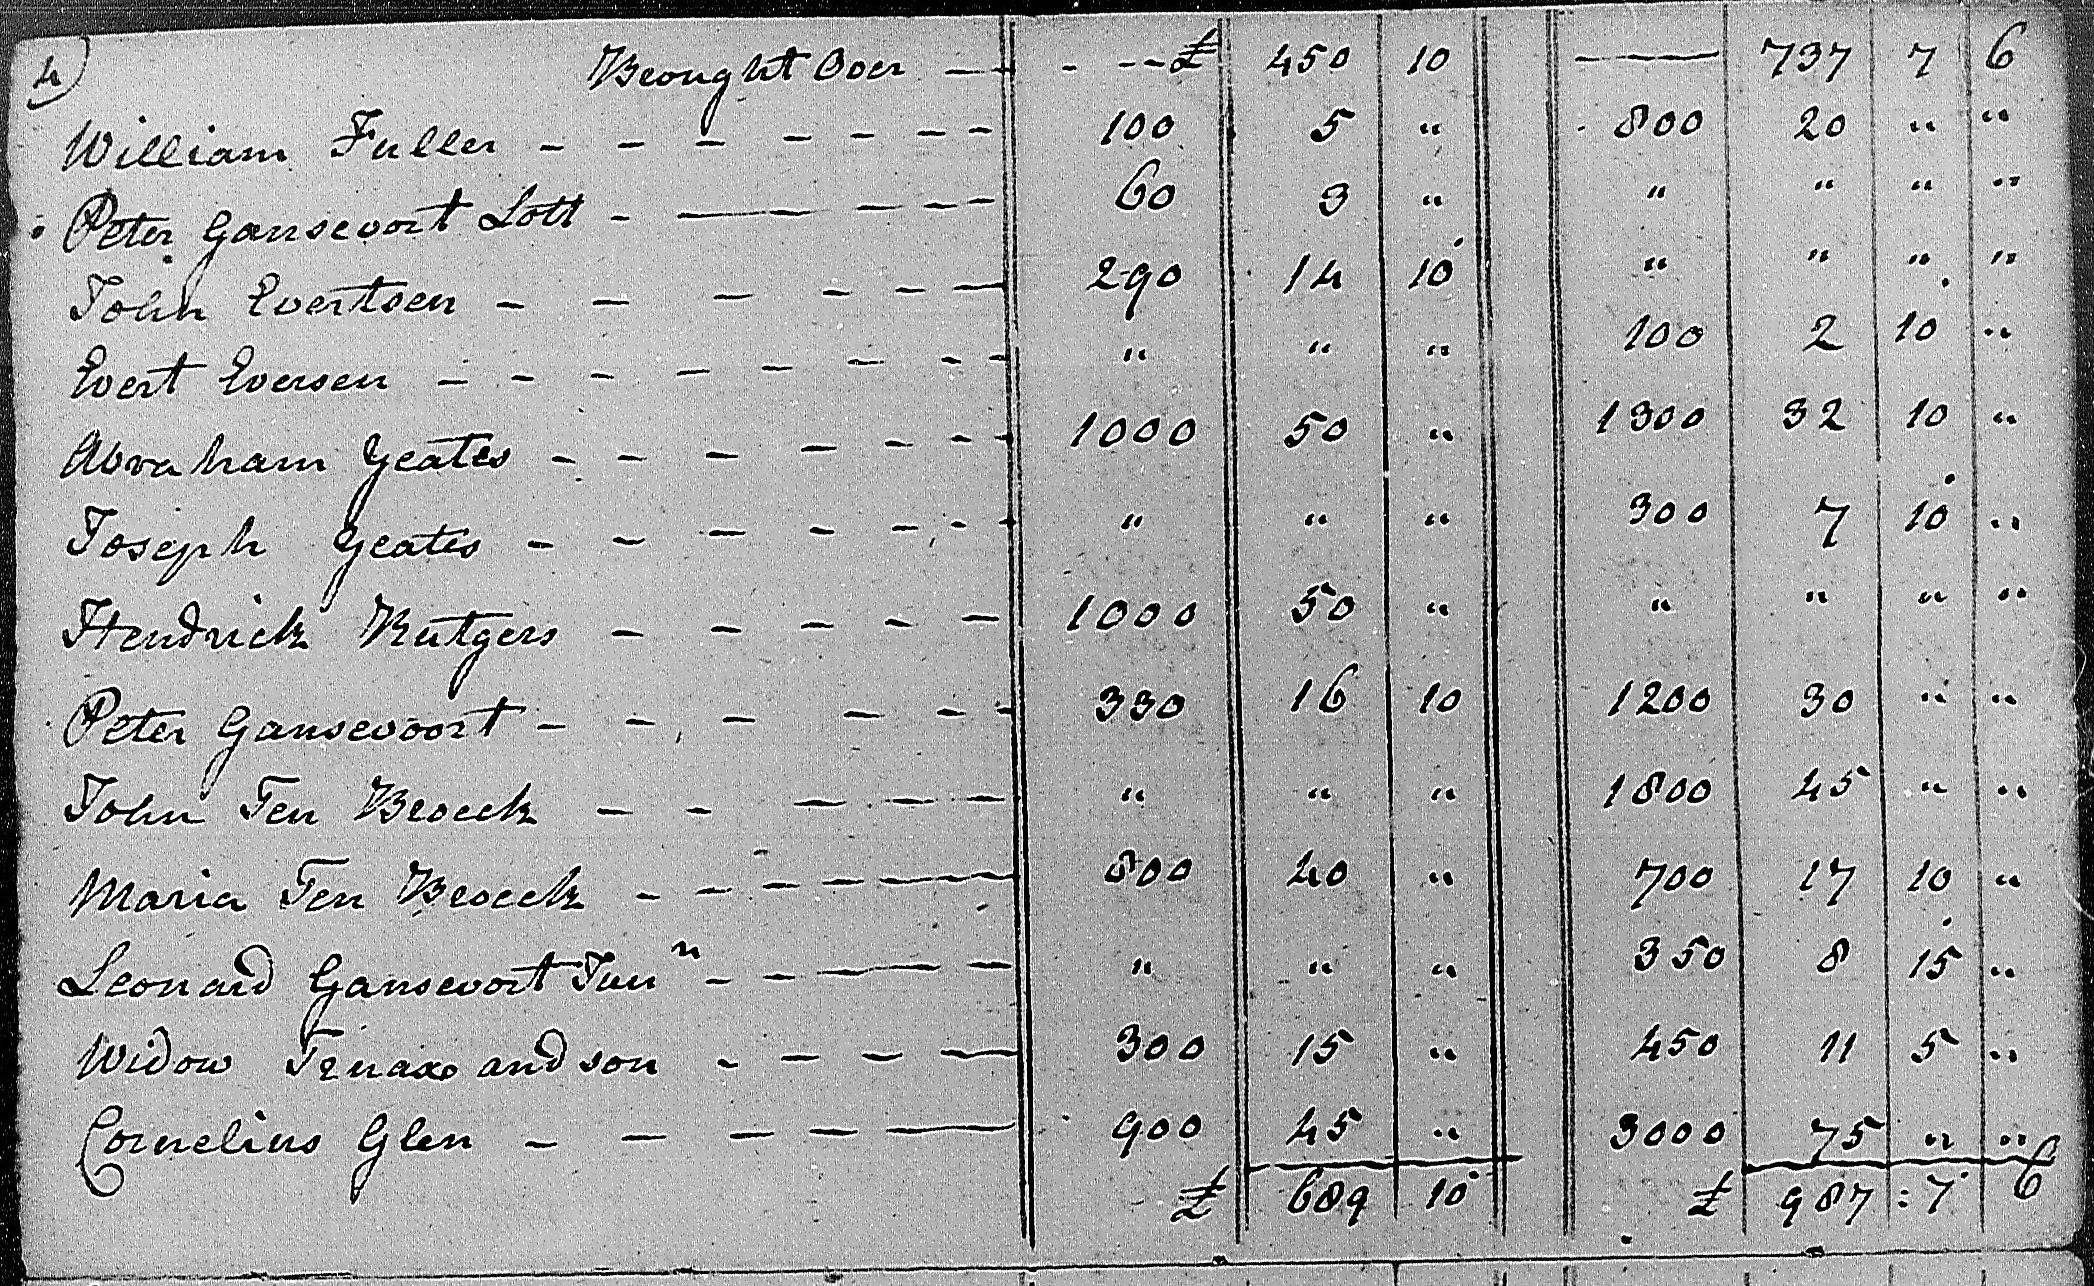 4)
Brought Over — - -- £ 450 10 — 737 7 6
William Fuller - - - - - - - 100 5 " 800 20 " "
Peter Gansevort Lott - — - - - 60 3 " " " " "
John Evertsen - - - - - - 290 14 10 " " " "
Evert Eversen - - - - - - - - " " " 100 2 10 "
Abraham Yeates - - - - - - - 1000 50 " 1300 32 10 "
Joseph Yeates - - - - - - - " " " 300 7 10 "
Hendrick Rutgers - - - - - 1000 50 " " " " "
Peter Gansevoort - - - - - - 330 16 10 1200 30 " "
John Ten Broeck - - - - - " " " 1800 45 " "
Maria Ten Broeck - - - - - - 800 40 " 700 17 10 "
Leonard Gansevort Junr - - - - - " " " 350 8 15 "
Widow and son - - - - 300 15 " 450 11 5 "
Cornelius Glen - - - - - 900 45 " 3000 75 " "
£ 689 10 £ 987 : 7 6